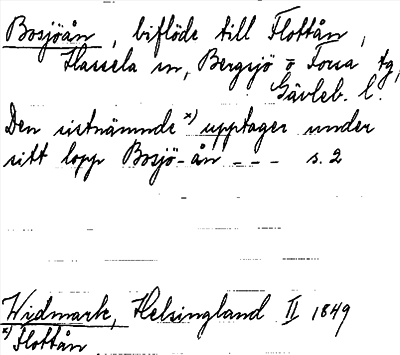 Bosjöån, biflöde till Flottån,
Hassela sn, Bergsjö o Forsa tg,
Gävleb. l.
Den sistnämnde x) upptager under
sitt lopp Bosjö-ån - - - s. 2
Widmark, Helsingland II 1849
x) Flottån